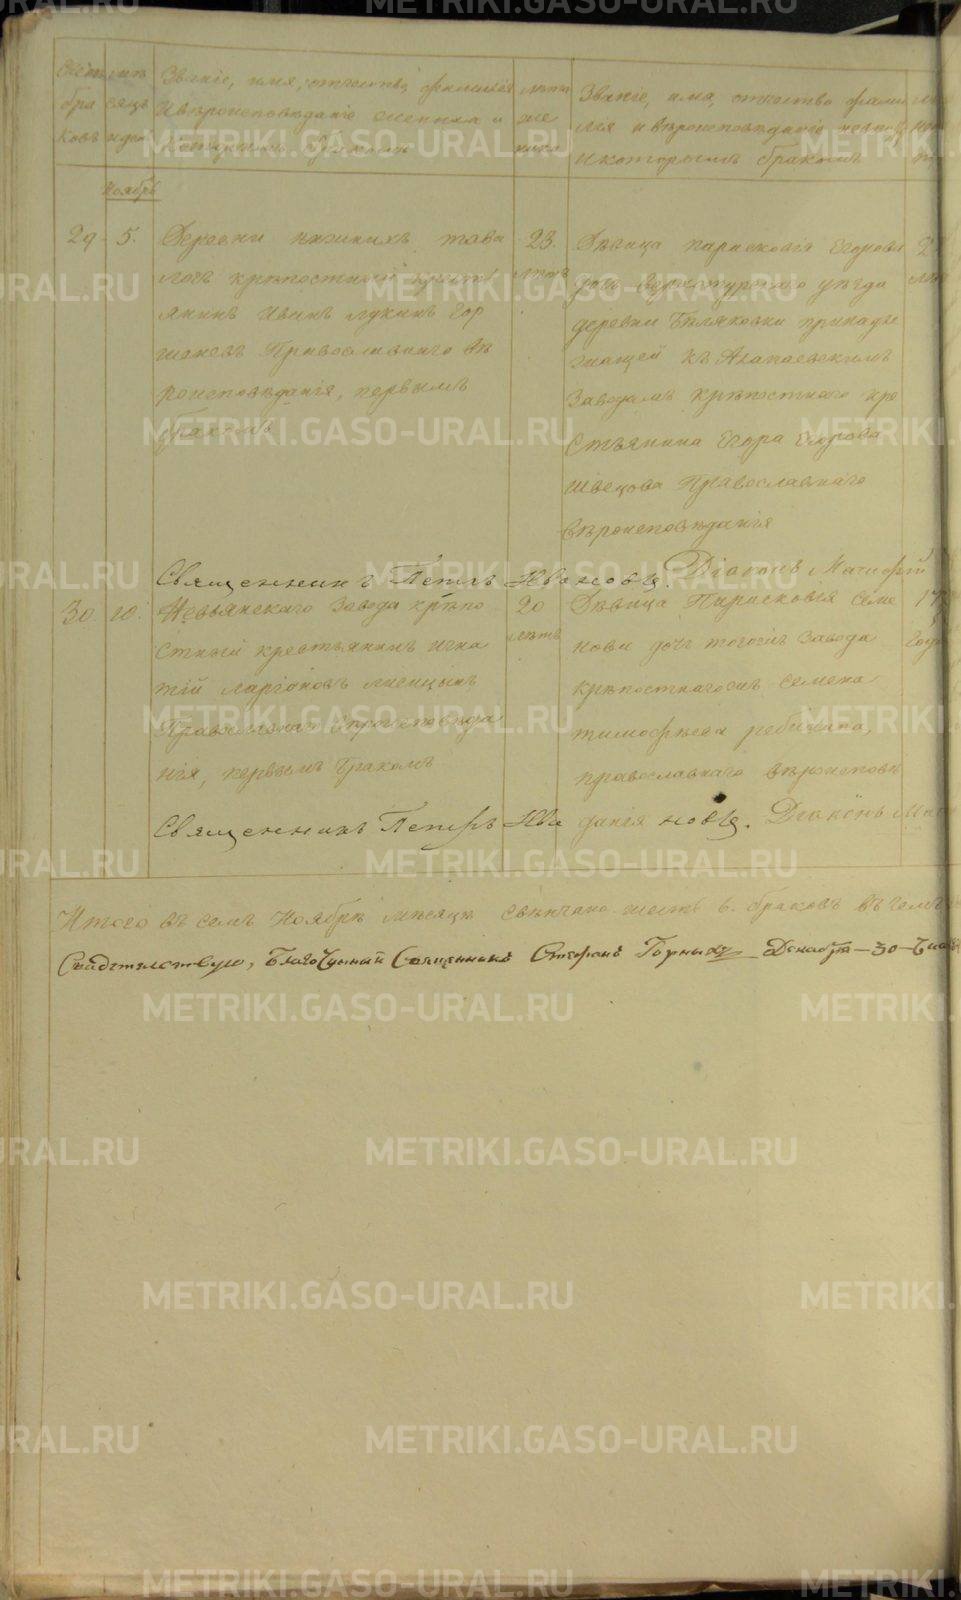 Счетъ бра ковъ
мѣ сяцъ и день
Званіе, имя, отчество, фамилія
и вѣроисповѣданіе жениха и
которымъ бракомъ
лѣта же ниха
Званіе, имя, отчество фами
лія и вѣроисповѣданіе невѣс
и которымъ бракомъ
Ноябрь
29 5.
Деревни нижнихъ тава
логъ крѣпостный крест
янинъ Иванъ Лукинъ Гор
шеневъ Православнаго вѣ
роисповѣданія, первымъ
бракомъ
23. лѣтъ
Дѣвица парасковія Егорова
дочь Верхотурскаго уѣзда
деревни Бѣляковки принадле
жащей къ Алапаевскимъ
Заводамъ крѣпостнаго кре
стьянина Егора Егорова
Швецова Православнаго
вѣроисповѣданія
Священникъ Петръ Ивановъ. Діаконъ
30 10.
Невьянскаго Завода крѣпо
стный крестьянинъ Игна
тій Ларіоновъ лисицынъ
Православнаго вѣроисповѣда
нія, первымъ бракомъ
20 лѣтъ
Дѣвица Парасковія Семе
нова дочь тогожъ Завода
крѣпостнагожъ Семена
тимофѣева
православнаго вѣроисповѣ
данія
17 года
Священникъ Петръ Ивановъ. Діаконъ
Итого въ семъ Ноябрѣ мѣсяцѣ свѣнчано шесть 6. браковъ въ чемъ
Свидѣтельствую, Благочинный Священникъ Стефанъ Горныхъ Декабря—30—
METRIKI.GASO-URAL.RU